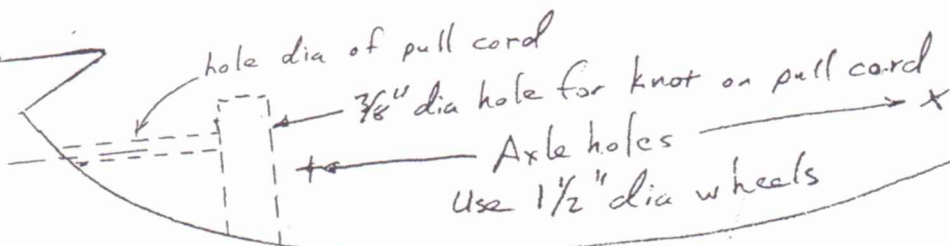 hole dia of pull cord
3/8" dia hole for knot on pull cord
Axle holes
Use 1 1/2" dia wheels